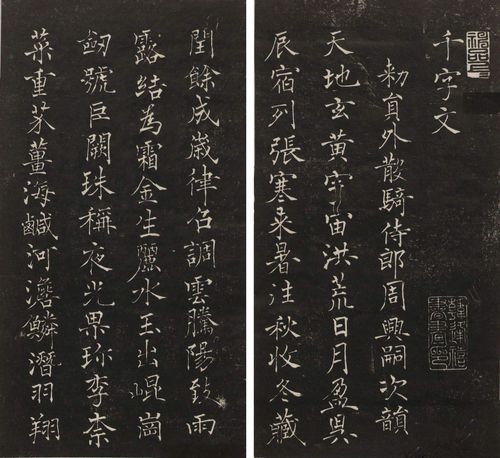 千字文
勑員外散騎侍郎周興嗣次韻
天地玄黃宇宙洪荒日月盈昃
辰宿列張寒来暑往秋收冬藏
閏餘成歲律呂調雲騰陽致雨
露結為霜金生麗水玉出崐崗
劒號巨闕珠稱夜光果珍李柰
菜重芥薑海鹹河淡鱗潛羽翔